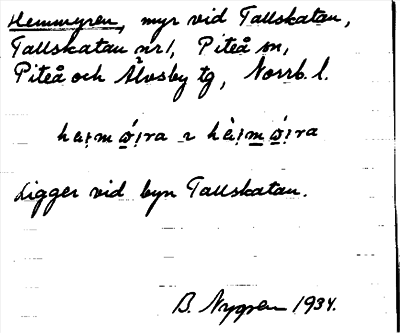 Hemmyren, myr vid Tallskatan,
Tallskatan nr 1, Piteå sn,
Piteå och Älvsby tg, Norrb. l.
Ligger vid byn Tallskatan.
B. Nygren 1934.